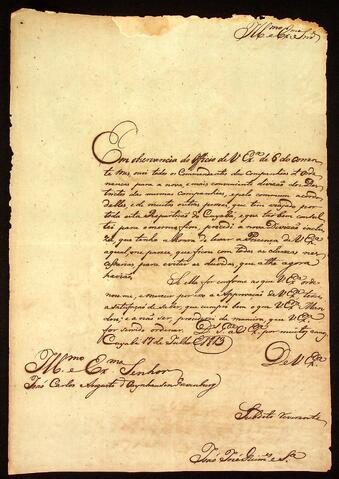 Ill.mo e Ex.mo Snr
Em observancia do Officio de V Ex.a de 6 do corren
te mez ouvi todos os Commandantes das Companhias d'Orde
nanças para a nova, e mais conveniente divizão dos Des
trictos das mesmas Companhias, e pelo commum acordo
delles, e de muitas outras pessoas, que tem viajado por
toda esta Repartição do Cuyabá, e que
para o mesmo fim, procedi a nova Divizão inclu
za, que tenho a Honra de levar a Prezença de V Ex.a
a qual me parece, que fica com todas as clarezas ne
cessarias para evitar as duvidas, que athe agora
havião.
Se ella for conforme ao que V Ex.a me orde
nou, e merecer por isso a Approvação de V Ex.a terei
a satisfação de saber, que cumpri bem o que V Ex.a Man
dou; e a não ser, procederei da maneira, que V Ex.a
for servido ordenar. D.s G.e a V Ex.a por muitos annos
Cuyabá 17 de Julho de 1813
De V Ex.a
Ill.mo e Ex.mo Senhor
João Carlos Augusto d'Oeynhausen Gravenberg
Subdito reverente
João José Guim.es e S.a